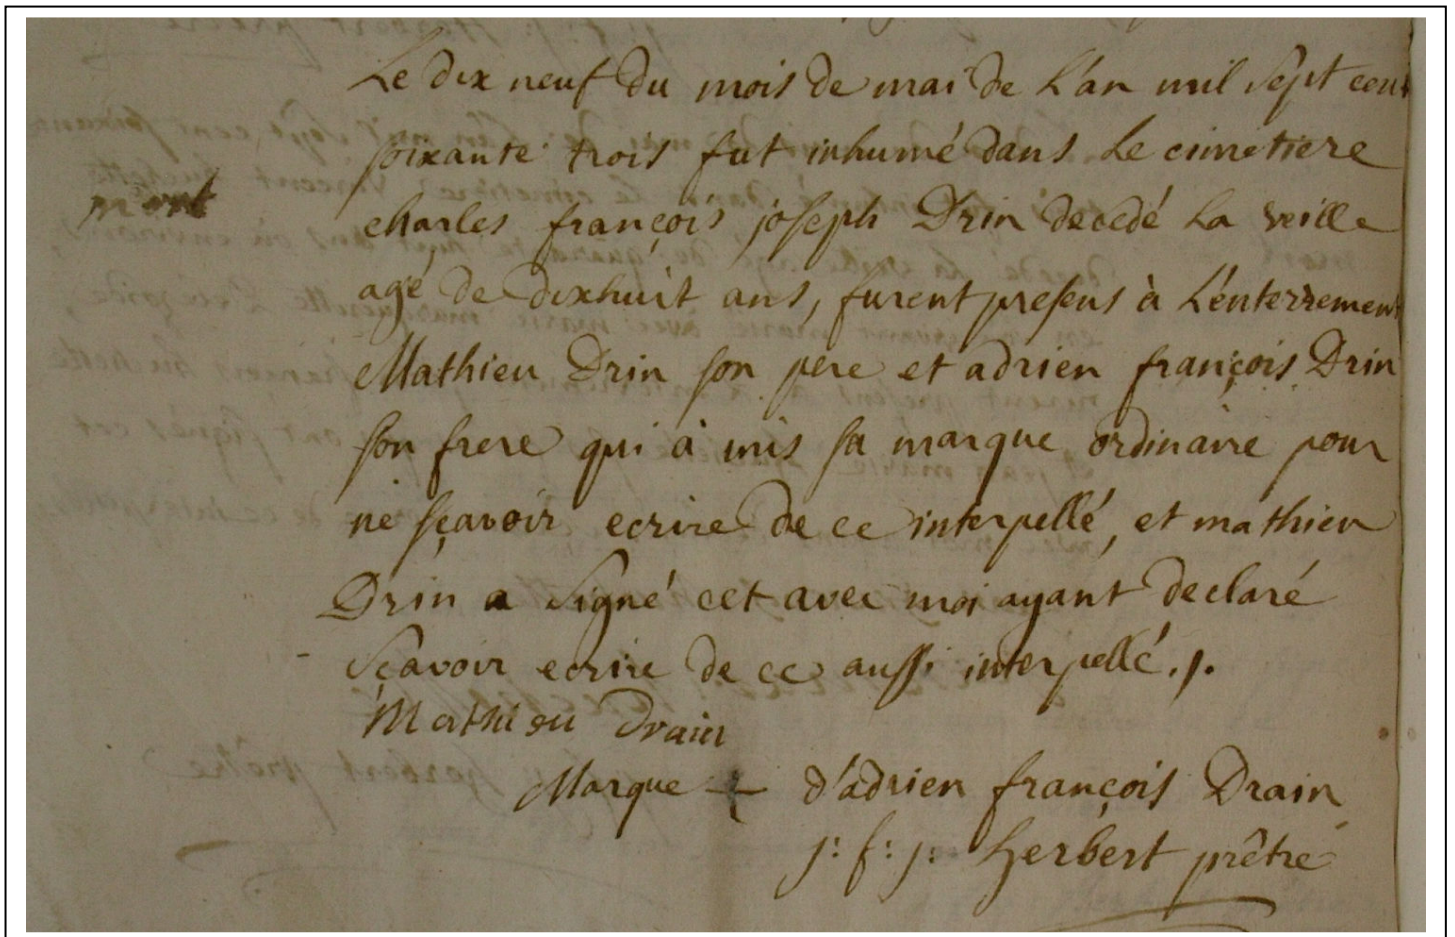 Le dix neuf du mois de mai de L'an mil sept cent
mort
soixante trois fut inhumé dans Le cimetiere
charles françois joseph Drin decedé La veille
agé de dixhuit ans, furent presens à L'énterrement
Mathieu Drin son pere et adrien françois Drin
son frere qui à mis sa marque ordinaire pour
ne sçavoir ecrire de ce interpellé, et mathieu
Drin a signé cet avec moi ayant declaré
sçavoir ecrire de ce aussi interpellé.
Mathieu Drain
Marque d'adrien françois Drain
j: f: j: herbert prêtre